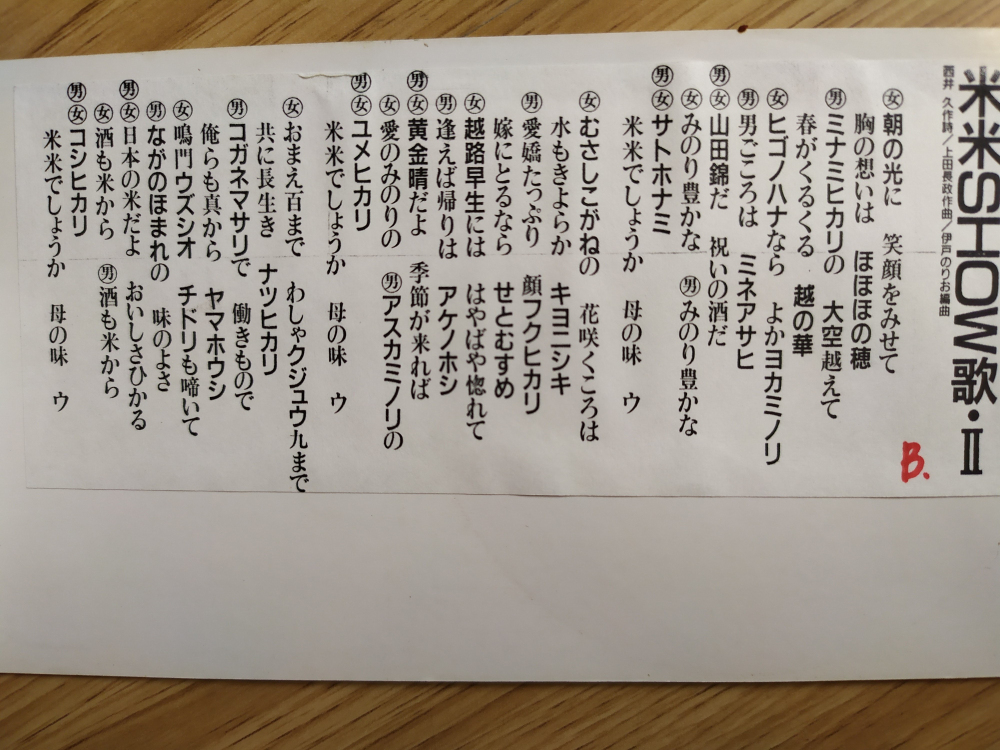 米米SHOW歌・Ⅱ
西井 久作詩／上田長政作曲／伊戸のりお編曲
B.
㊛朝の光に 笑顔をみせて
胸の想いは ほほほの穂
㊚ミナミヒカリの 大空越えて
春がくるくる 越の華
㊛ヒゴノハナなら よかヨカミノリ
㊚男ごころは ミネアサヒ
㊚㊛山田錦だ 祝いの酒だ
㊛みのり豊かな ㊚みのり豊かな
㊚㊛サトホナミ
米米でしょうか 母の味 ウ
㊛むさしこがねの 花咲くころは
水もきよらか キヨニシキ
㊚愛嬌たっぷり 顔フクヒカリ
嫁にとるなら せとむすめ
㊛越路早生には はやばや惚れて
㊚逢えば帰りは アケノホシ
㊚㊛黄金晴だよ 季節が来れば
㊛愛のみのりの ㊚アスカミノリの
㊚㊛ユメヒカリ
米米でしょうか 母の味 ウ
㊛おまえ百まで わしゃクジュウ九まで
共に長生き ナツヒカリ
㊚コガネマサリで 働きもので
俺らも真から ヤマホウシ
㊛鳴門ウズシオ チドリも啼いて
㊚ながのほまれの 味のよさ
㊚㊛日本の米だよ おいしさひかる
㊛酒も米から ㊚酒も米から
㊚㊛コシヒカリ
米米でしょうか 母の味 ウ